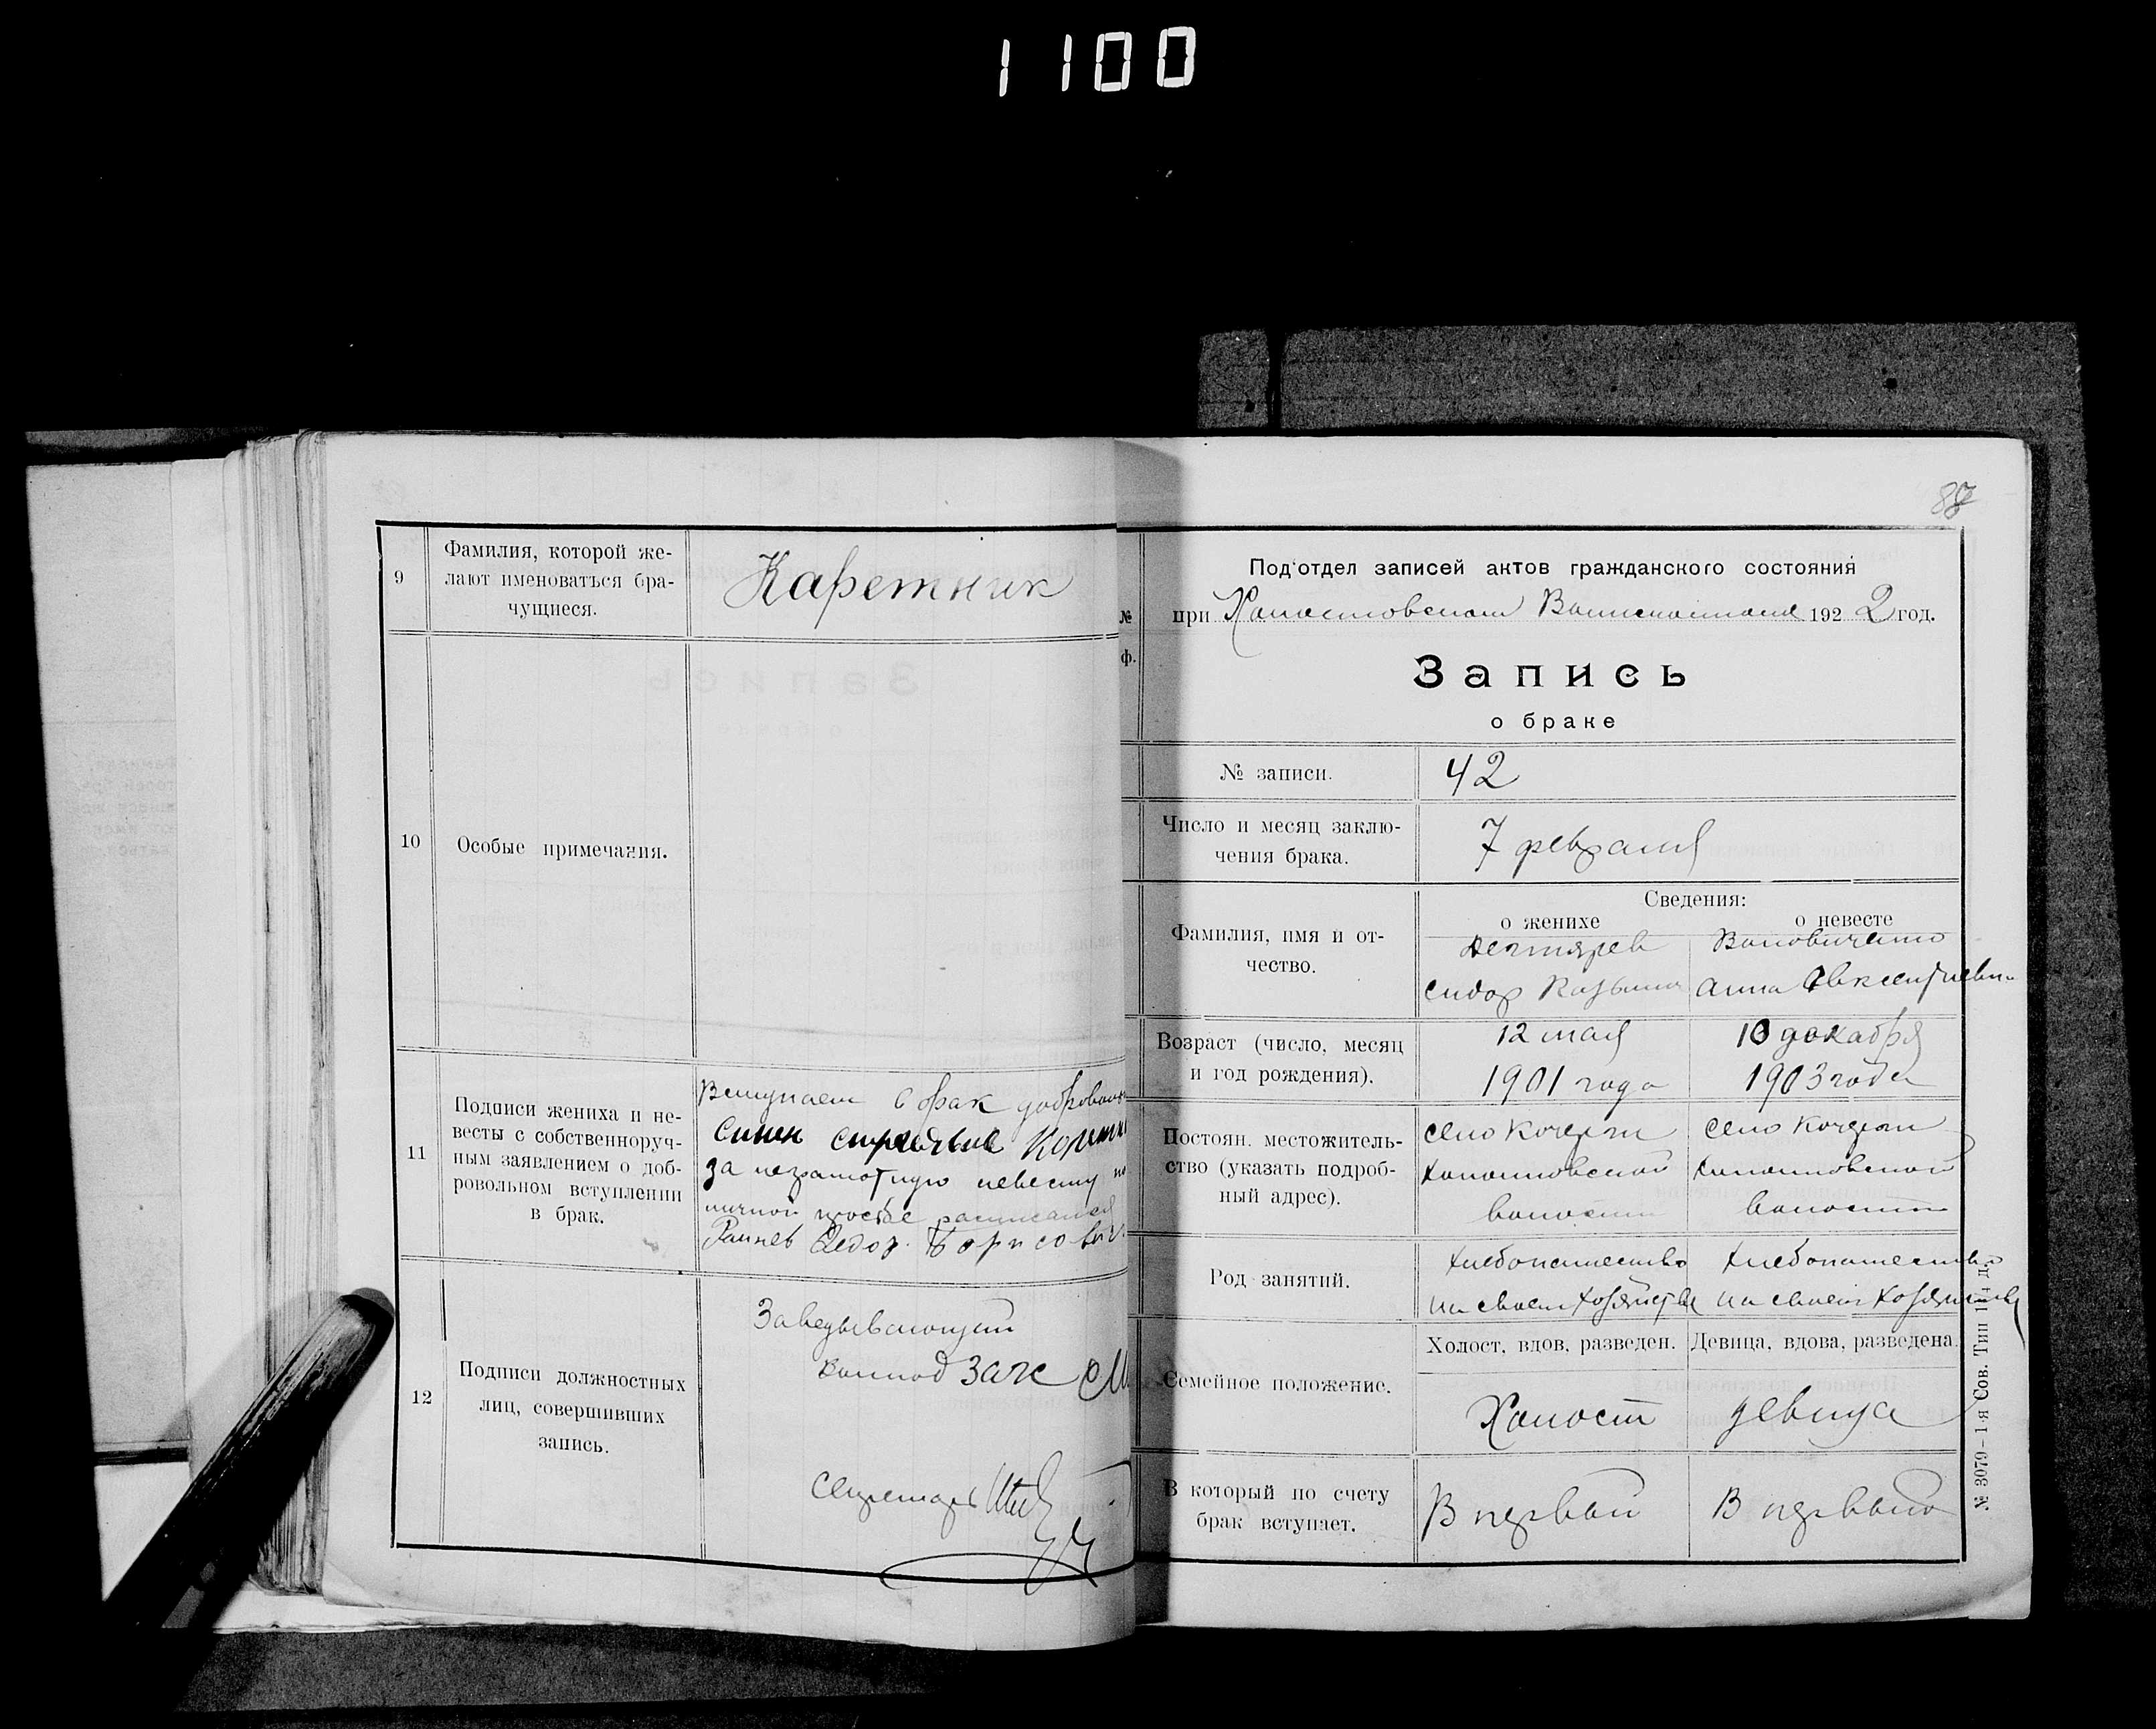 1100
9
Фамилия, которой же-
лают именоваться бра-
чущиеся.
Каретник
10
Особые примечания.
11
Подписи жениха и не-
весты с собственноруч-
ным заявлением о доб-
ровольном вступлении
в брак.
Вступаем в брак
за неграмотную невесту
личной просьбе расписался
Федор Борисович
12
Подписи должностных
лиц, совершивших
запись.
Заведывающий
ЗАГС
Секретарь
87
№
ф.
Под'отдел записей актов гражданского состояния
при 1922 год.
Запись
о браке
№ записи.
42
Число и месяц заклю-
чения брака.
7 февраля
Сведения:
о женихе
о невесте
Фамилия, имя и от-
чество.
Дегтярев
Сидор Козьмич
Анна Авксентиевн
Возраст (число, месяц
и год рождения).
12 мая
1901 года
10 декабря
1903 года
Постоян. местожитель-
ство (указать подроб-
ный адрес).
село
волости
село
волости
Род занятий.
хлебопашество
на своем хозяйстве
хлебопашество
на своем хозяйстве
Семейное положение.
Холост, вдов, разведен.
Девица, вдова, разведена.
Холост
девица
В который по счету
брак вступает.
В первый
В первый
№ 3079 – 1-я Сов. Тип